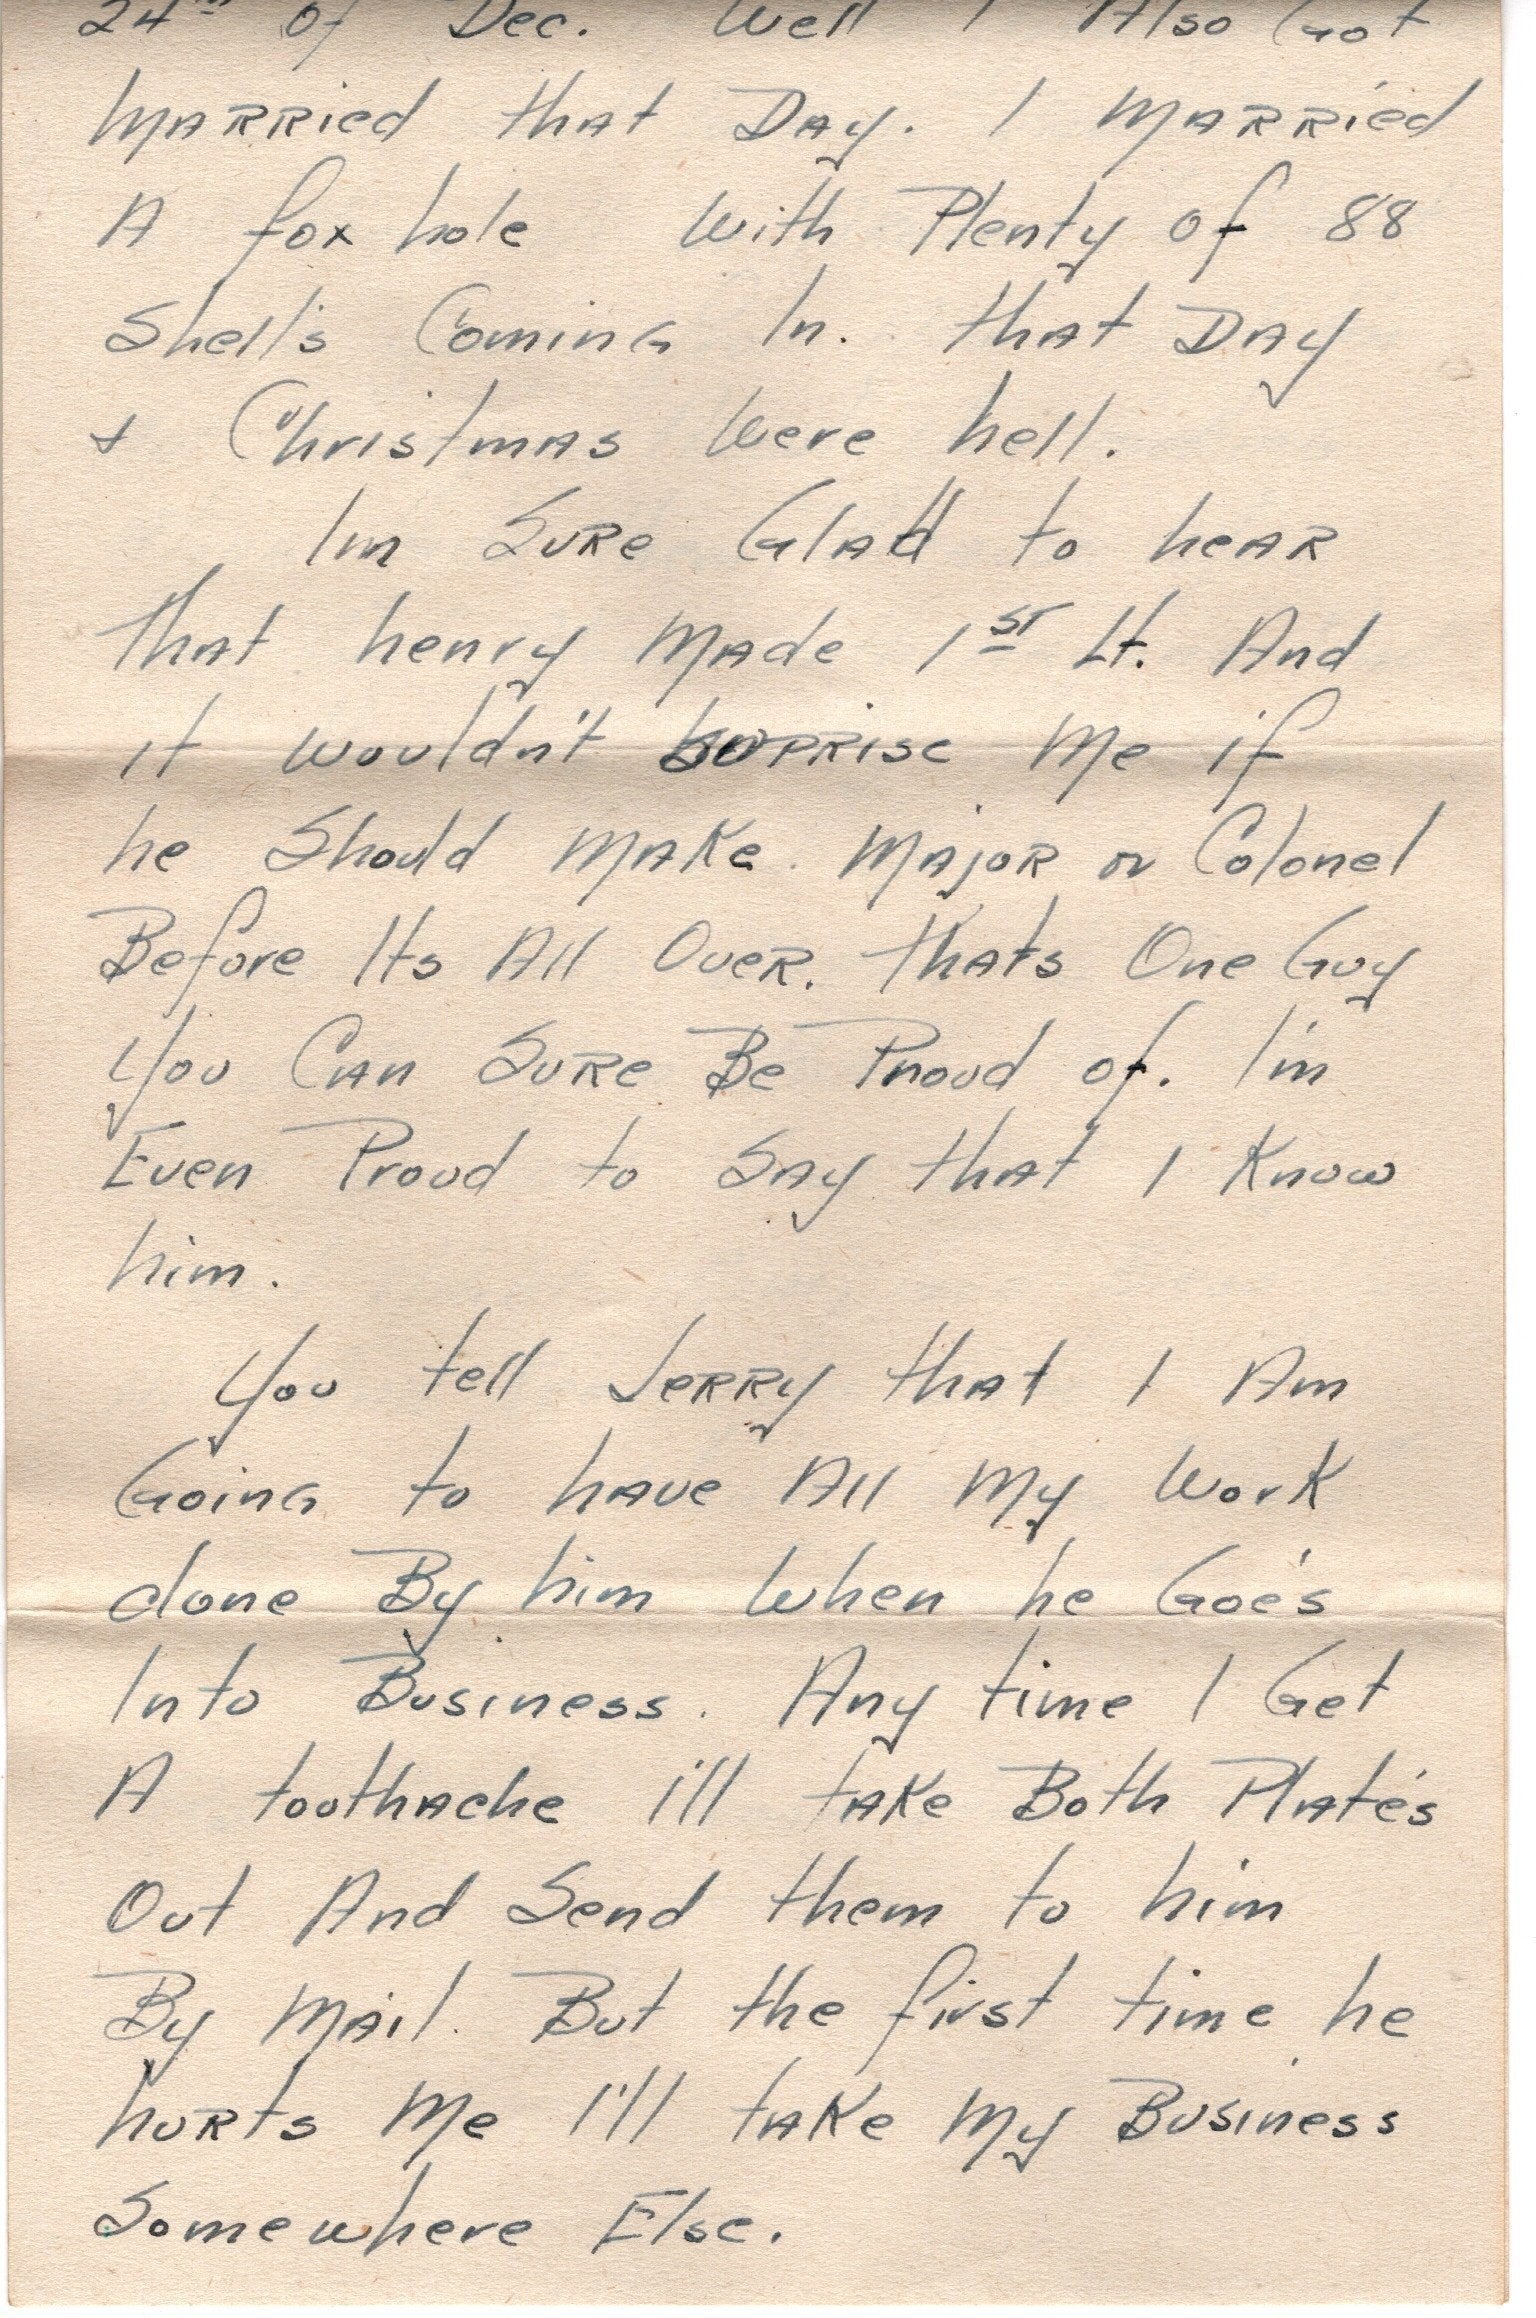 24th of Dec. Well I Also Got
MARRied that DAy. I MARRied
A fox hole With Plenty of 88
Shell's Coming In. that DAy
& Christmas Were hell.
I'm SURe Glad to heAR
That henry Made 1st Lt. And
it wouldn't suPRise Me if
he Should MAKe. MajoR or Colonel
Before Its All OveR. thats One Guy
You Can SURe Be Proud of. I'm
Even Proud to SAy that I Know
him.
You tell JeRRy that I Am
Going to have All My Work
done By him When he Goe's
Into Business. Any time I Get
A toothache I'll tAKe Both Plate's
Out And Send them to him
By MAil. But the first time he
huRts Me I'll tAKe My Business
Somewhere Else.